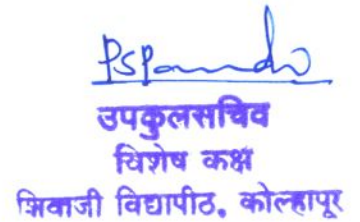 उपकुलसचिव
विशेष कक्ष
शिवाजी विद्यापीठ, कोल्हापूर